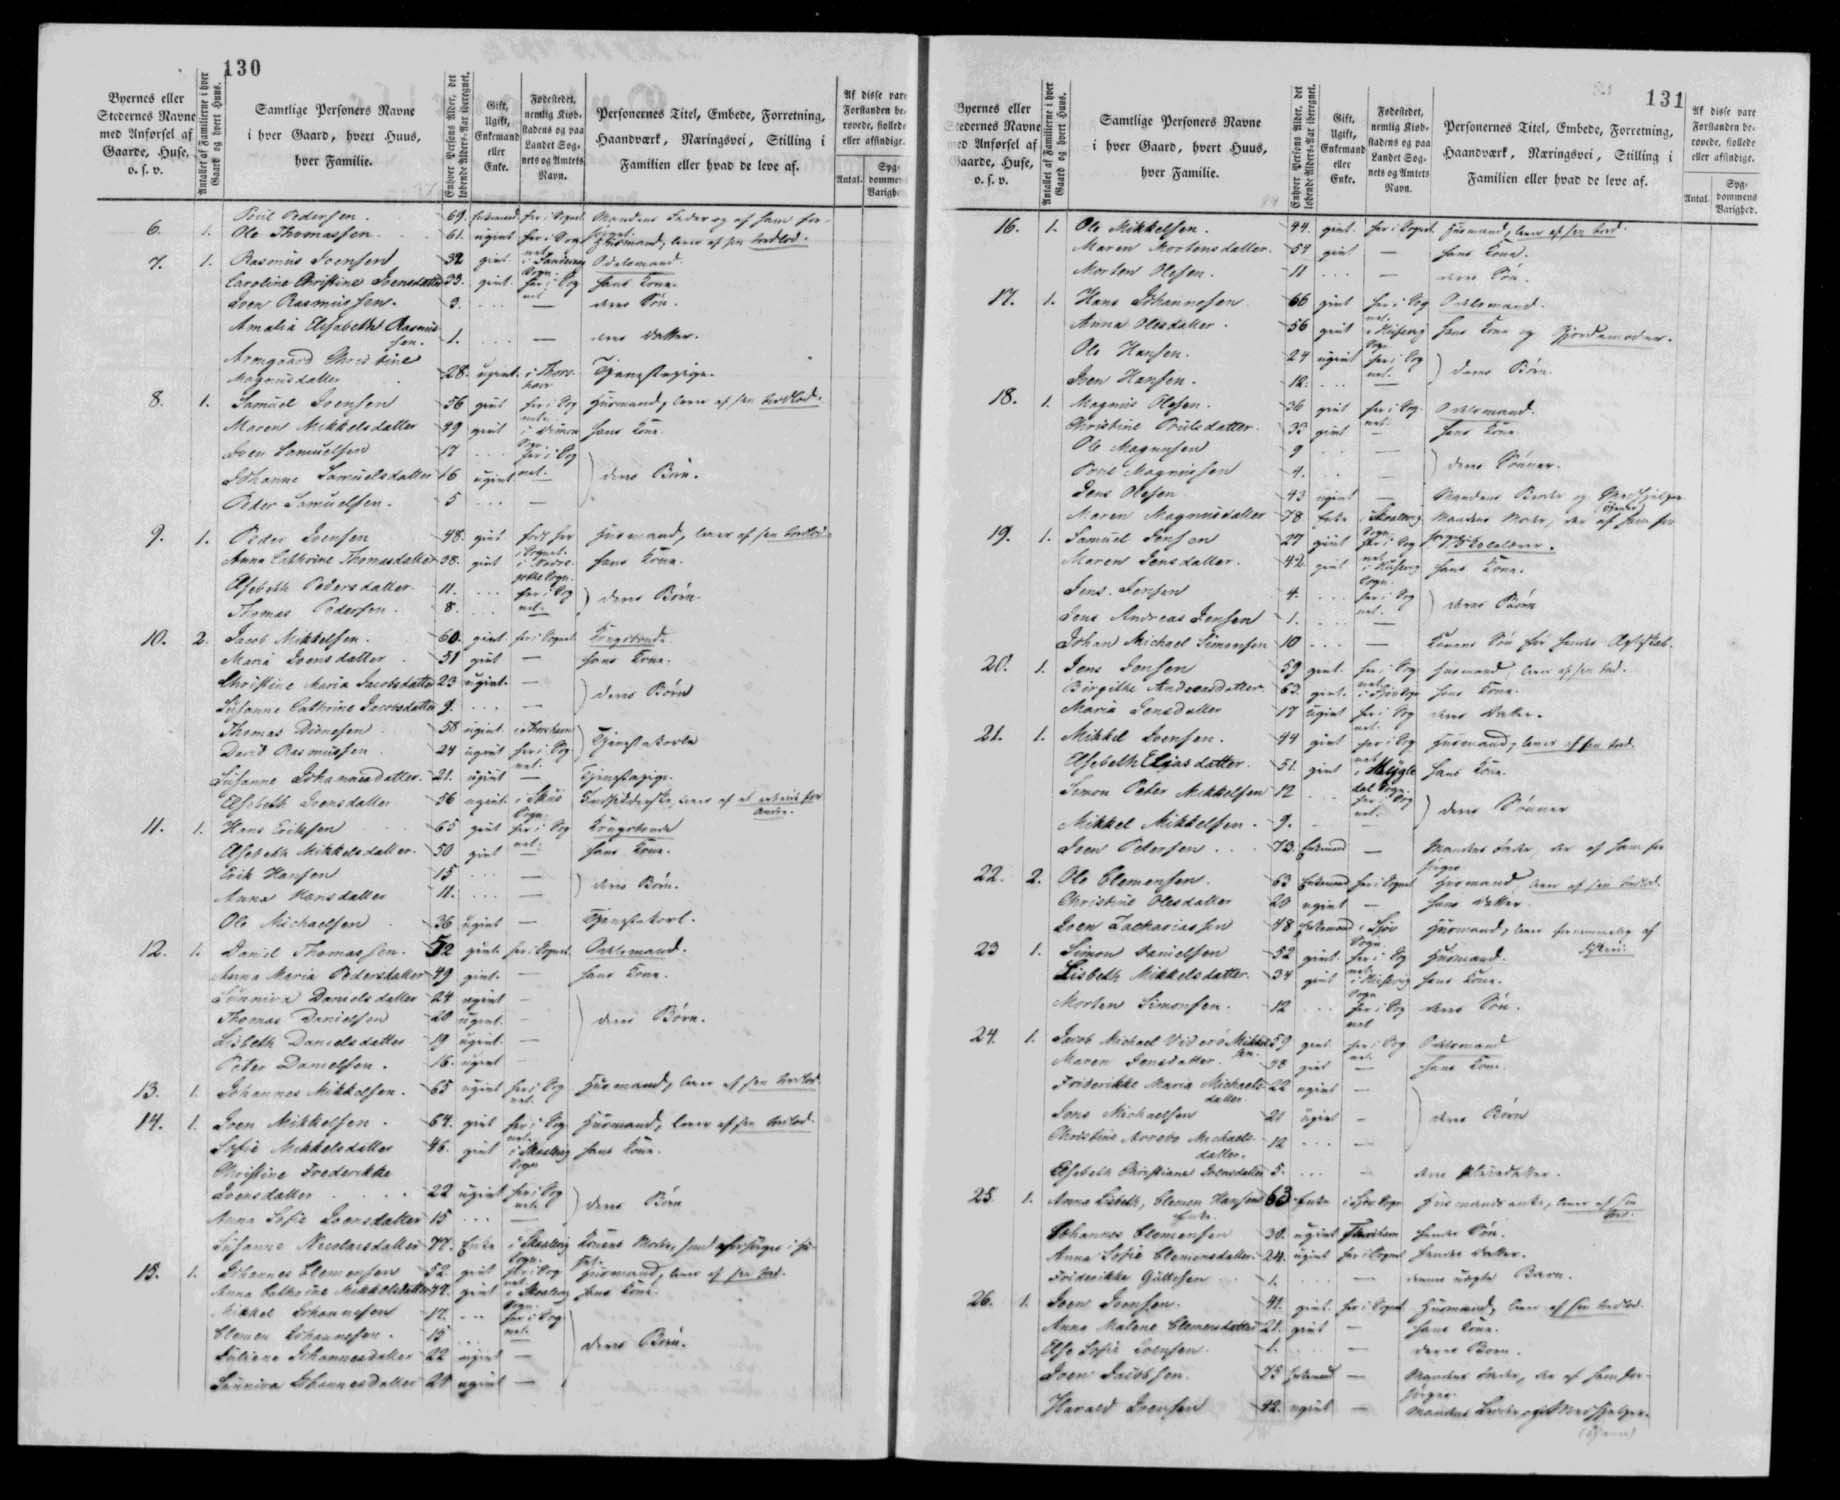 130
Byernes eller Stedernes Navne med Anførsel af Gaarde, Huse, o. s. v.
Antallet af Familierne i hver Gaard og hvert Huus.
Samtlige Personers Navne i hver Gaard, hvert Huus, hver Familie.
Enhver Persons Alder, det løbende Alders-Aar iberegnet.
Gift, Ugift, Enkemand eller Enke.
Fødestedet, nemlig Kiøbstadens og paa Landet Sognets og Amtets Navn.
Personernes Titel, Embede, Forretning, Haandværk, Næringsvei, Stilling i Familien eller hvad de leve af.
Af disse vare Forstanden berovede, fiollede eller afsindige.
Antal.
Sygdommens Varighed
Poul Pedersen. 69. Enkemand her i Sognet Mandens Fader og af ham for-
6. 1. Ole Thomassen. 61. ugivt her i Sognet Huusmand, lever af sin Jordlod.
7. 1. Rasmus Joensen 32 givt i Sandenes Sogn Odelsmand
Caroline Christine Joensdatter 33. givt her i Sognet hans Kone.
Joen Rasmussen. 3. ... — deres Søn.
Amalia Elsebeth Rasmussen. 1. ... — deres Datter.
Armgaard Christine Magnusdatter 28. ugivt. i Thorshavn Tjenestepige.
8. 1. Samuel Joensen 56 givt her i Sognet Huusmand, lever af sin Jordlod.
Maren Mikkelsdatter 49 givt hans Kone
Joen Samuelsen 17 ... her i Sognet
Johanne Samuelsdatter 16 ugivt — deres Børn.
Peder Samuelsen. 5 ... —
9. 1. Peder Joensen 48. givt født her i Sognet Huusmand, lever af sin Jordlod
Anna Cathrine Thomasdatter 38. givt hans Kone.
Elsebeth Pedersdatter 11. ... her i Sognet deres Børn.
Thomas Pedersen. 8. ... —
10. 2. Jacob Mikkelsen. 60. givt her i Sognet Kongsbonde
Maria Joensdatter 51 givt — hans Kone.
Christine Maria Jacobsdatter 23 ugivt. — deres Børn
Susanne Cathrine Jacobsdatter 9. ... —
Thomas 58 ugivt i Thorshavn Tjenestekarle
David Rasmussen 24 ugivt her i Sognet
Susanne Johannesdatter. 21. ugivt — Tjenestepige.
Elsebeth Joensdatter 56 ugivt Sogn Indsidderske, lever af at arbeide for Andre.
11. 1. Hans Eriksen 65 givt her i Sognet Kongsbonde
Elsebeth Mikkelsdatter. 50 givt — hans Kone.
Erik Hansen 15 ... — deres Børn.
Anna Hansdatter 11. ... —
Ole Michaelsen 36 ugivt — Tjenestekarl.
12. 1. Daniel Thomassen. 52 givt. her i Sognet Odelsmand.
Anna Maria Pedersdatter 49 givt. — hans Kone.
Sunniva Danielsdatter 24 ugivt —
Thomas Danielsen 20 ugivt. — deres Børn.
Lisbeth Danielsdatter 19 ugivt. —
Peter Danielsen. 16. ugivt —
13. 1. Johannes Mikkelsen. 65 ugivt her i Sognet Huusmand, lever af sin Jordlod
14. 1. Joen Mikkelsen. 64. givt her i Sognet Huusmand, lever af sin Jordlod.
Sofie Mikkelsdatter 46. givt i Skaalevig Sogn hans Kone.
Christine Frederikke Joensdatter 22 ugivt her i Sognet deres Børn
Anna Sofie Joensdatter 15 ... —
Susanne Nicolaisdatter 77. Enke i Skaalevig Sogn. Konens Moder, som
15. 1. Johannes Clemensen 52. givt her i Sognet Huusmand, lever af sin Jord.
Anna Cathrine Mikkelsdatter 47. givt i Skaalevig Sogn. hans Kone.
Mikkel Johannesen 17. ... her i Sognet
Clemen Johannesen. 15 ... — deres Børn.
Juliane Johannesdatter 22 ugivt —
Sunniva Johannesdatter 20 ugivt —
131
Byernes eller Stedernes Navne med Anførsel af Gaarde, Huse, o. s. v.
Antallet af Familierne i hver Gaard og hvert Huus.
Samtlige Personers Navne i hver Gaard, hvert Huus, hver Familie.
Enhver Persons Alder, det løbende Alders-Aar iberegnet.
Gift, Ugift, Enkemand eller Enke.
Fødestedet, nemlig Kiøbstadens og paa Landet Sognets og Amtets Navn.
Personernes Titel, Embede, Forretning, Haandværk, Næringsvei, Stilling i Familien eller hvad de leve af.
Af disse vare Forstanden berovede, fiollede eller afsindige.
Antal.
Sygdommens Varighed.
16. 1. Ole Mikkelsen. 44. givt. her i Sognet Huusmand, lever af sin Jord.
Maren Mortensdatter. 54 givt — hans Kone.
Morten Olesen. 11 ... — deres Søn.
17. 1. Hans Johannesen 66 givt her i Sognet Odelsmand.
Anna Olesdatter. 56 givt i Husevig Sogn hans Kone og Gjordemoder.
Ole Hansen. 24 ugivt her i Sognet deres Børn.
Joen Hansen. 12. ... —
18. 1. Magnus Olesen. 36 givt her i Sognet Odelsmand.
Christine Poulsdatter. 35 givt — hans Kone.
Ole Magnusen 9 ... — deres Sønner.
Poul Magnussen 4. ... —
Jens Olesen 43 ugivt — Mandens Broder og Medhjelper
Maren Magnusdatter 78 Enke i Skaalevig Sogn Mandens Moder, der af ham for
19. 1. Samuel Jensen 27 givt her i Sognet Skolelærer.
Maren Jensdatter. 42 givt i Husevig Sogn. hans Kone.
Jens Jensen 4. ... her i Sognet deres Børn
Jens Andreas Jensen 1. ... —
Johan Michael Simonsen 10 ... — Konens Søn før hendes Ægteskab.
20. 1. Jens Jensen 59 givt. her i Sognet Huusmand, lever af sin Jord.
Birgithe Andreasdatter. 63. givt. hans Kone.
Maria Jensdatter 17 ugivt her i Sognet deres Datter.
21. 1. Mikkel Joensen. 44 givt her i Sognet Huusmand, lever af sin Jord.
Elsebeth Eliasdatter. 51. givt hans Kone.
Simon Peter Mikkelsen 12 ... her i Sognet deres Sønner
Mikkel Mikkelsen. 9. — —
Joen Petersen ... 73. Enkemand — Mandens Fader, der af ham forsørges
22. 2. Ole Clemensen. 63 Enkemand her i Sognet Huusmand, lever af sin Jordlod.
Christine Olesdatter 20 ugivt — hans Datter
Joen Zachariassen 48 Enkemand i Sogn. Huusmand, lever fornemmelig af
23 1. Simon Danielsen 52 givt. her i Sognet Huusmand.
Lisbeth Mikkelsdatter. 34 givt i Husevig Sogn hans Kone.
Morten Simonsen. 12 ... her i Sognet deres Søn.
24. 1. Jacob Michael Viderø Mikkelsen. 59 givt. her i Sognet Odelsmand
Maren Jensdatter. 58 givt — hans Kone.
Friderikke Maria Michaelsdatter. 22 ugivt —
Jens Michaelsen 21 ugivt — deres Børn
Christine Arrebo Michaelsdatter. 12 ... —
Elsebeth Christiane Joensdatter 5. ... —
25 1. Anna Lisbeth, Clemen Hansens Enke. 63 Enke Huusmandsenke, lever af sin Jord.
Johannes Clemensen 30. ugivt Thorshavn hendes Søn.
Anna Sofie Clemensdatter. 24. ugivt her i Sognet hendes Datter.
Friderikke 1. ... — dennes uægte Barn.
26. 1. Joen Joensen. 41. givt. her i Sognet Huusmand, lever af sin Jordlod.
Anna Malene Clemensdatter 21. givt — hans Kone.
Else Sofie Joensen. 1. ... — deres Barn.
Joen Jacobsen. 75 Enkemand — Mandens Fader, der af ham forsørges.
Harald Joensen 42. ugivt — Mandens Broder og Medhjelper.